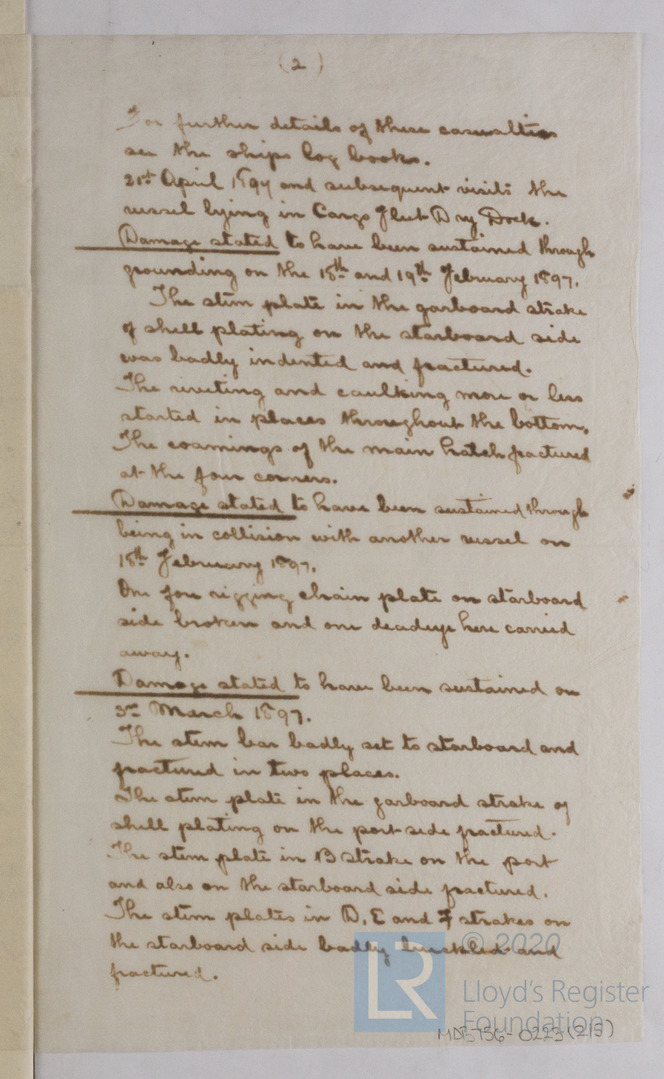 (2)
For further details of these casualties
see the ships log books.
21st April 1897 and subsequent visits the
vessel lying in Cargo Fleet Dry Dock.
Damage stated to have been sustained through
grounding on the 18th and 19th February 1897.
The stem plate in the garboard strake
of shell plating on the starboard side
was badly indented and fractured.
The riveting and caulking more or less
started in places throughout the bottom.
The coamings of the main hatch fractured
at the four corners.
Damage stated to have been sustained through
being in collision with another vessel on
18th February 1897.
One fore rigging chain plate on starboard
side broken and one deadeye here carried
away.
Damage stated to have been sustained on
3rd March 1897.
The stem bar badly set to starboard and
fractured in two places.
The stem plate in the garboard strake of
shell plating on the port side fractured.
The stem plate in B strake on the port
and also on the starboard side fractured.
The stem plates in D, E and F strakes on
the starboard side badly buckled and
fractured.
© 2020
LR
Lloyd's Register
Foundation
MDB756-0223(2/5)